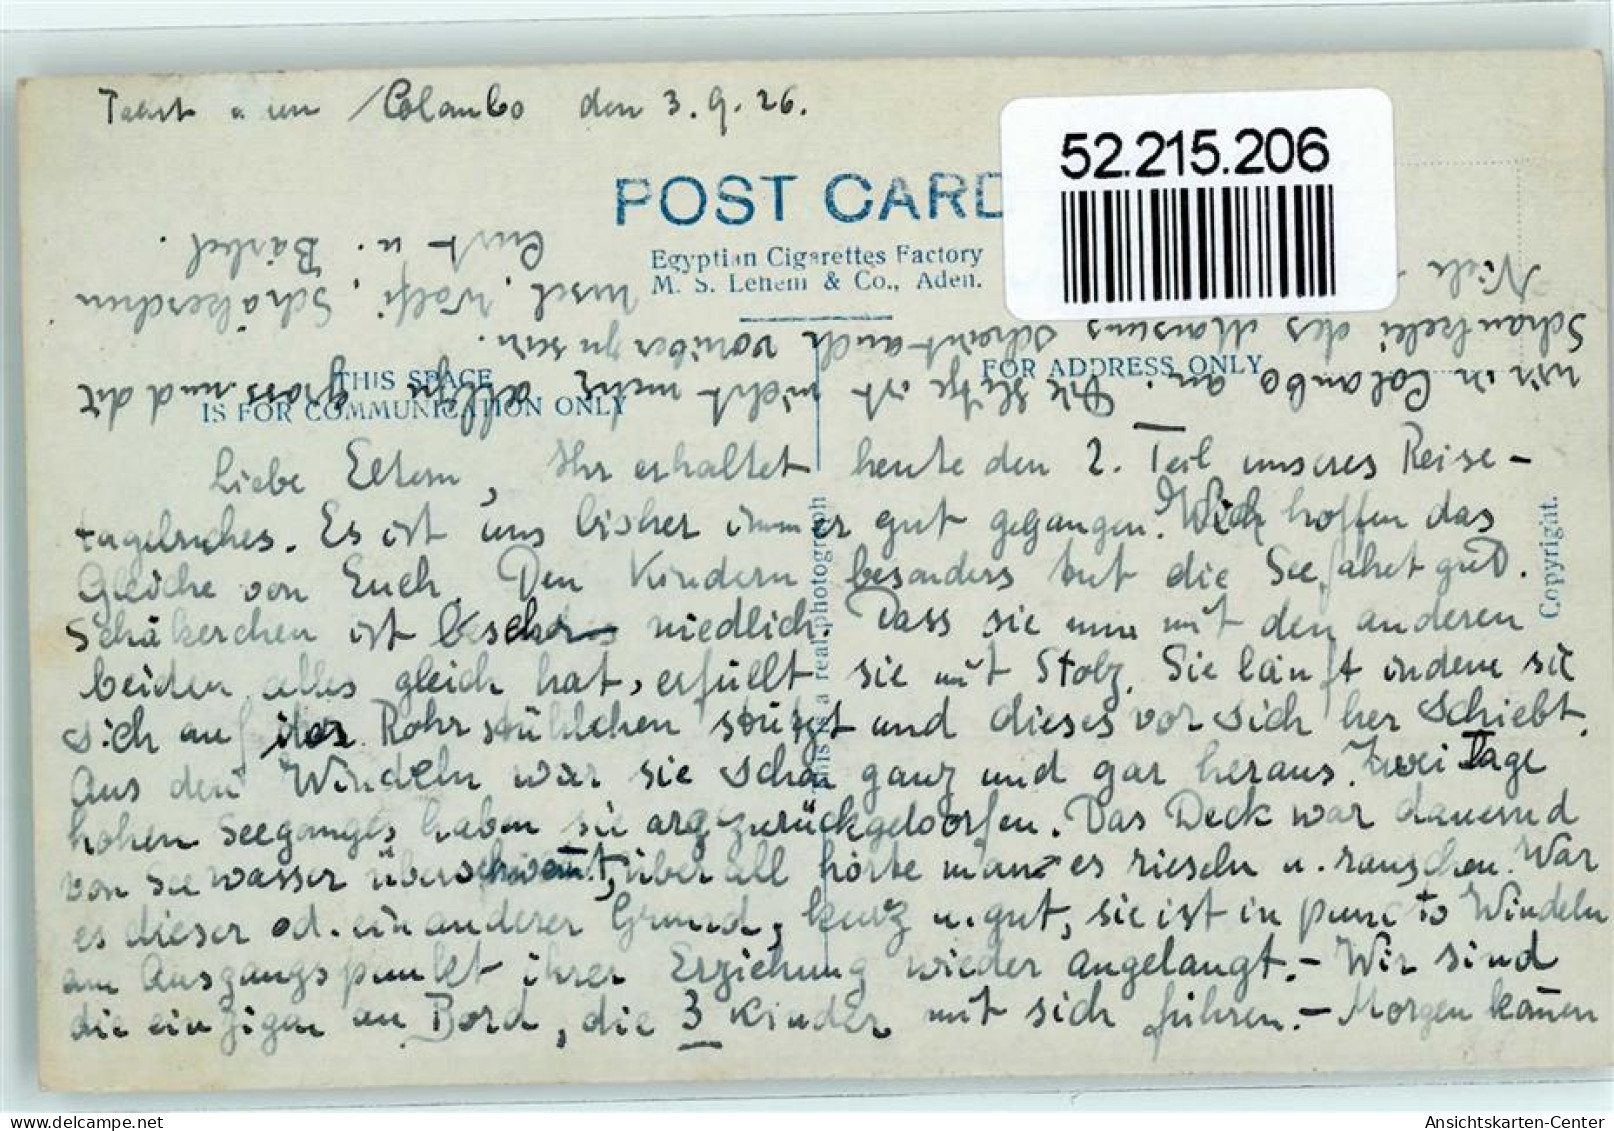 den 3.9.26.
52.215.206
POST CARD
Egyptian Cigarettes Factory
M. S. Lehem & Co., Aden.
THIS SPACE
IS FOR COMMUNICATION ONLY
FOR ADDRESS ONLY
Liebe Eltern, Ihr erhaltet heute den 2. Teil unseres Reise-
tagebuches. Es ist uns bisher immer gut gegangen. Wir hoffen das
Gleiche von Euch. Den Kindern besonders tut die Seefahrt gut.
Schäkerchen ist niedlich. Dass sie nun mit den anderen
beiden alles gleich hat, erfüllt sie mit Stolz. Sie läuft indem sie
sich auf Rohrstühlchen stützt und dieses vor sich her schiebt.
Aus den Windeln war sie schon ganz und gar heraus. Zwei Tage
hohen Seeganges haben sie arg zurückgeworfen. Das Deck war dauernd
von Seewasser überschwemmt, überall hörte man es rieseln u. rauschen. War
es dieser od. ein anderer Grund, kurz u. gut, sie ist in puncto Windeln
am Ausgangspunkt ihrer Erziehung wieder angelangt. – Wir sind
die einzigen an Bord, die 3 Kinder mit sich führen. – Morgen kommen
wir in Colombo an. Die Hitze ist nicht mehr allzu gross und die
Schaukelei des Monsuns scheint auch vorüber zu sein.
Wolfi, Schäkerchen
u. Bärbel.
This is a real photograph
Copyright.
Ansichtskarten-Center